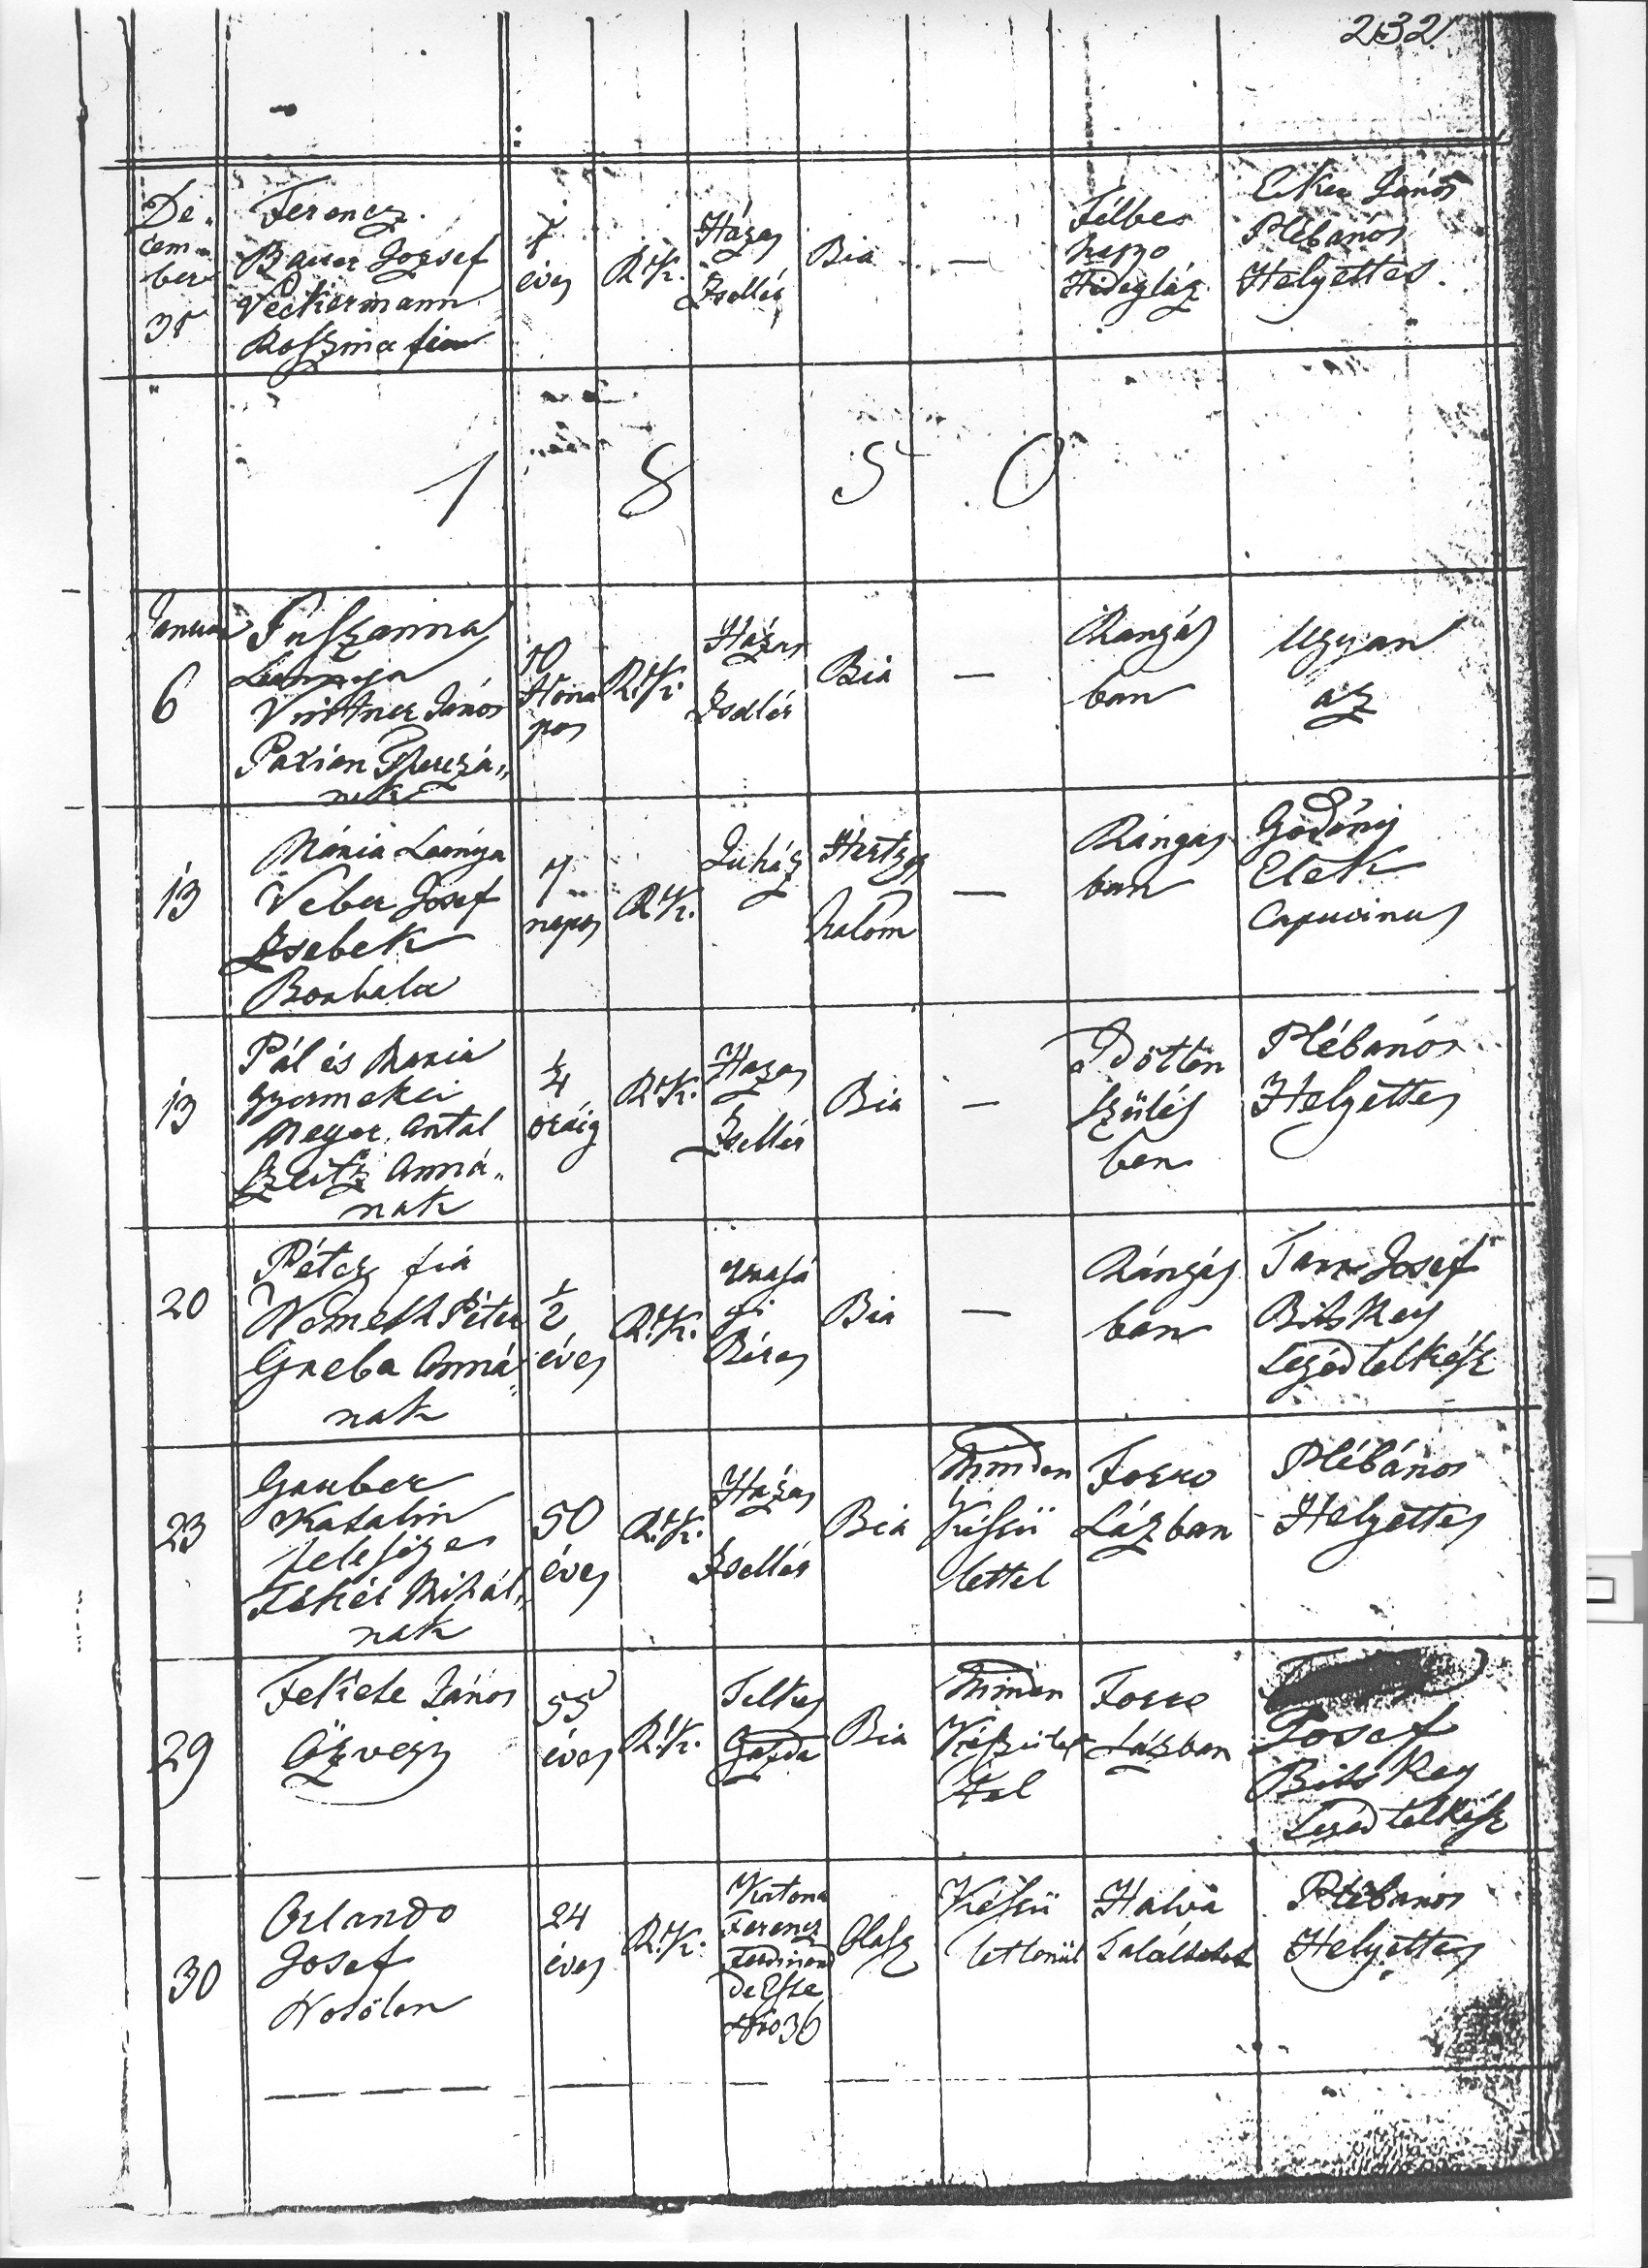 232
De-
cem-
ber
31
Ferencz
Bauer Jozsef
Veckermann
Roszina fia
7
éves
R.K.
Házas
Zsellér
Bia
—
Félbe
hagyo
Hidegláz
Eker János
Plébános
Helyettes.
1 8 5 0
Januar
6
Zuszanna
Leánya
Vintner János
Paxian Therezá„
nak
10
Hóna
pos
R.K.
Házas
Zsellér
Bia
—
Rángás
ban
Ugyan
az
13
Mária Leánya
Veber Josef
Zsebek
Borbala
7
napos
R.K.
Juhász
Hertzeg
halom
—
Rángás
ban
Gödöny
Elek
Capucinus
13
Pál és Maria
gyermekei
Mayer Antal
Szeitz Anná„
nak
1/4
oráig
R.K.
Hazas
Zsellér
Bia
—
Idötlen
szülés
ben
Plébános
Helyettes
20
Péter fia
Németh Péter
Greba Anná„
nak
1/2
éves
R.K.
urasá
gi
Béres
Bia
—
Rángás
ban
Josef
Bitskey
Segéd lelkész
23
Gruber
Katalin
felesége
Fehér Mihál„
nak
50
éves
R.K.
Házas
Zsellér
Bia
Minden
Készü
lettel
Forro
Lázban
Plébános
Helyettes
29
Fekete János
Özvegy
55
éves
R.K.
Telkes
Gazda
Bia
Minden
Készület
tel
Forro
Lázban
Josef
Bitskey
Segéd lelkész
30
Orlando
Josef
24
éves
R.K.
Katona
Ferencz
Ferdinand
De Este
Nro 36
Olasz
Készü
letlenül
Halva
Találtatot
Plébános
Helyettes